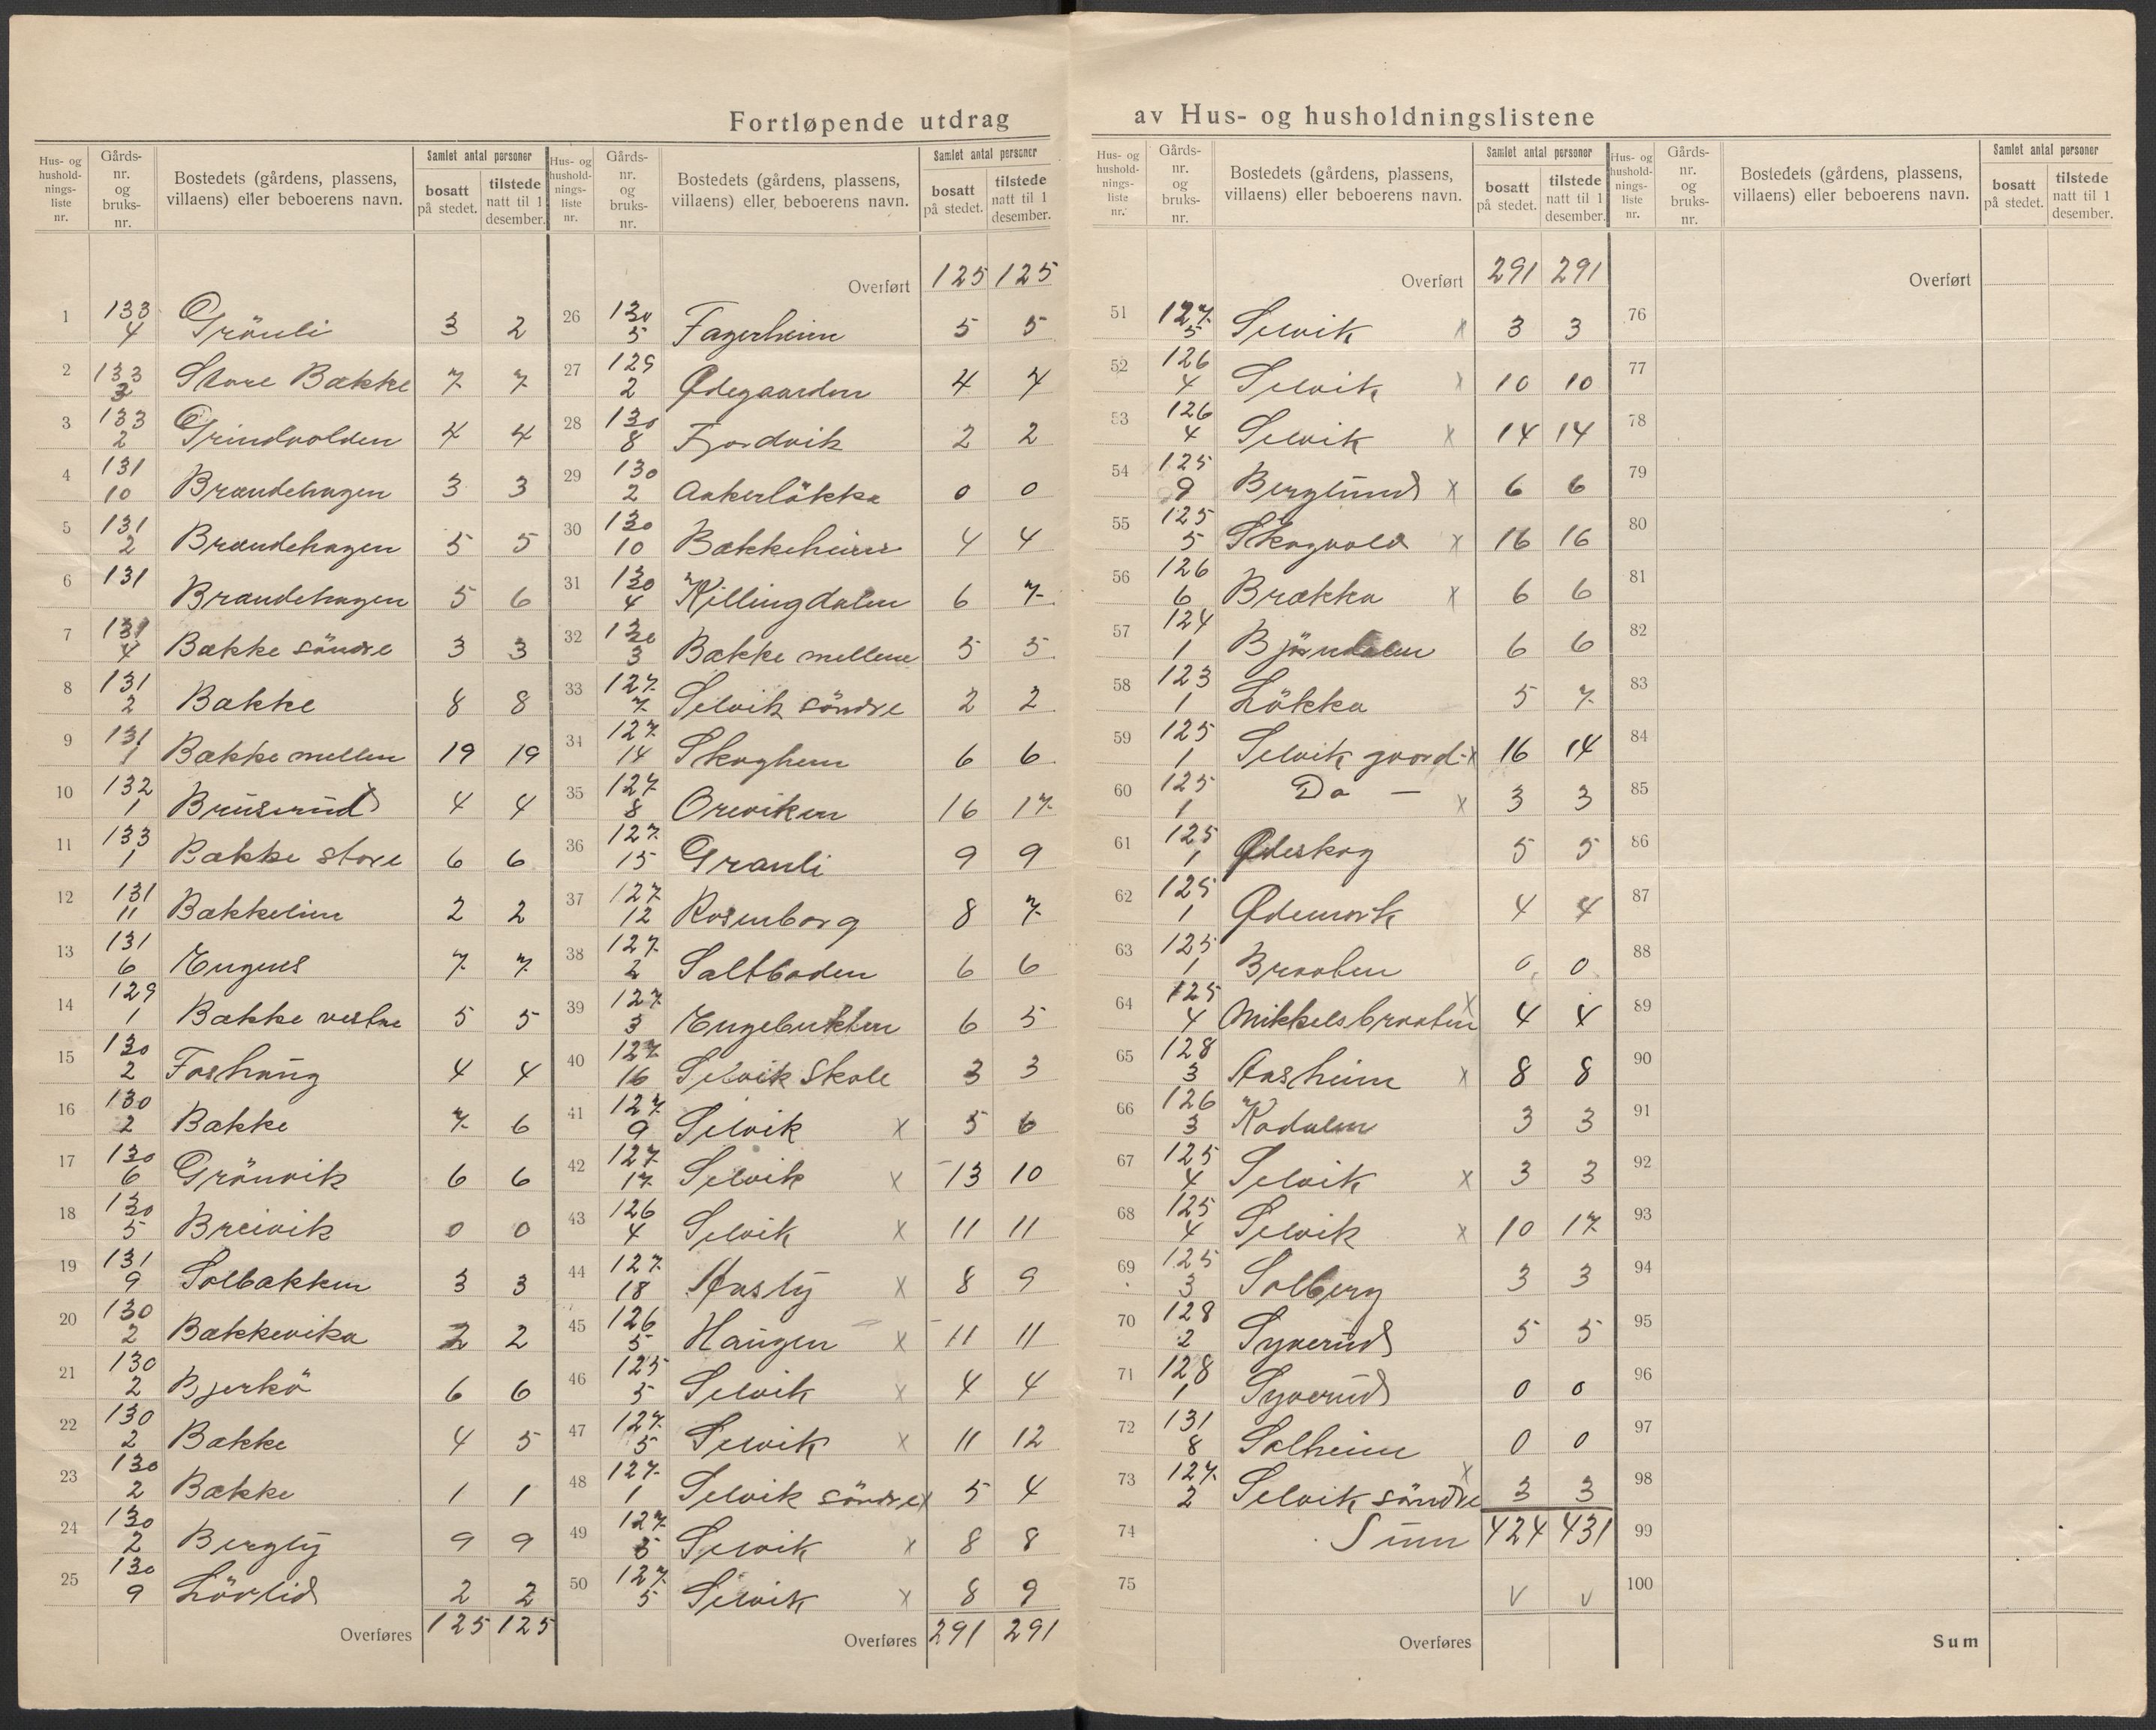 Fortløpende utdrag av Hus- og husholdningslistene
Hus- og hushold- nings- liste nr. | Gårds- nr. og bruks- nr. | Bostedets (gårdens, plassens, villaens) eller beboerens navn. | Samlet antal personer | bosatt på stedet. | tilstede natt til 1 desember.
1 | 133 4 | Grönli | 3 | 2
2 | 133 3 | Store Bække | 7 | 7
3 | 133 2 | Grindvolden | 4 | 4
4 | 131 10 | Brændehagen | 3 | 3
5 | 131 2 | Brændehagen | 5 | 5
6 | 131 | Brændehagen | 5 | 6
7 | 131 4 | Bække söndre | 3 | 3
8 | 131 2 | Bække | 8 | 8
9 | 131 1 | Bække mellem | 19 | 19
10 | 132 1 | Bruserud | 4 | 4
11 | 133 1 | Bække store | 6 | 6
12 | 131 11 | Bækkelim | 2 | 2
13 | 131 6 | Engens | 7 | 7
14 | 129 1 | Bække vestre | 5 | 5
15 | 130 2 | Foshaug | 4 | 4
16 | 130 2 | Bække | 7 | 6
17 | 130 6 | Grönvik | 6 | 6
18 | 130 5 | Breivik | 0 | 0
19 | 131 9 | Solbakken | 3 | 3
20 | 130 2 | Bækkevika | 2 | 2
21 | 130 2 | Bjerkö | 6 | 6
22 | 130 2 | Bække | 4 | 5
23 | 130 2 | Bække | 1 | 1
24 | 130 2 | Bergly | 9 | 9
25 | 130 9 | Lövlid | 2 | 2
Overføres | 125 | 125
Hus- og hushold- nings- liste nr. | Gårds- nr. og bruks- nr. | Bostedets (gårdens, plassens, villaens) eller beboerens navn. | Samlet antal personer | bosatt på stedet. | tilstede natt til 1 desember.
Overført | 125 | 125
26 | 130 5 | Fagerheim | 5 | 5
27 | 129 2 | Ødegaarden | 4 | 4
28 | 130 8 | Fjordvik | 2 | 2
29 | 130 2 | Aakerlökka | 0 | 0
30 | 130 10 | Bækkeheim | 4 | 4
31 | 130 4 | Killingdalen | 6 | 7
32 | 130 3 | Bække mellem | 5 | 5
33 | 127 7 | Selvik söndre | 2 | 2
34 | 127 14 | Skoghem | 6 | 6
35 | 127 8 | Oreviken | 16 | 17
36 | 127 15 | Granli | 9 | 9
37 | 127 12 | Rosenborg | 8 | 7
38 | 127 2 | Saltboden | 6 | 6
39 | 127 3 | Engebukten | 6 | 5
40 | 127 16 | Selvik Skole | 3 | 3
41 | 127 9 | Selvik x | 5 | 6
42 | 127 17 | Selvik x | 13 | 10
43 | 126 4 | Selvik x | 11 | 11
44 | 127 18 | Aasly x | 8 | 9
45 | 126 5 | Haugen x | 11 | 11
46 | 125 5 | Selvik x | 4 | 4
47 | 127 5 | Selvik x | 11 | 12
48 | 127 1 | Selvik söndre x | 5 | 4
49 | 127 5 | Selvik x | 8 | 8
50 | 127 5 | Selvik x | 8 | 9
Overføres | 291 | 291
Hus- og hushold- nings- liste nr. | Gårds- nr. og bruks- nr. | Bostedets (gårdens, plassens, villaens) eller beboerens navn. | Samlet antal personer | bosatt på stedet. | tilstede natt til 1 desember.
Overført | 291 | 291
51 | 127 5 | Selvik x | 3 | 3
52 | 126 4 | Selvik x | 10 | 10
53 | 126 4 | Selvik x | 14 | 14
54 | 125 9 | Berglund x | 6 | 6
55 | 125 5 | Skogvold x | 16 | 16
56 | 126 6 | Brækka x | 6 | 6
57 | 124 1 | Bjöndalen | 6 | 6
58 | 123 1 | Lökka | 5 | 7
59 | 125 1 | Selvik gaard x | 16 | 14
60 | 125 1 | Do — x | 3 | 3
61 | 125 1 | Ødeskog | 5 | 5
62 | 125 1 | Ødemark | 4 | 4
63 | 125 1 | Braaten | 0 | 0
64 | 125 4 | Mikkelsbraaten x | 4 | 4
65 | 128 3 | Aasheim x | 8 | 8
66 | 126 3 | Kodalen | 3 | 3
67 | 125 4 | Selvik x | 3 | 3
68 | 125 4 | Selvik x | 10 | 17
69 | 125 3 | Solberg | 3 | 3
70 | 128 2 | Syverud | 5 | 5
71 | 128 1 | Syverud | 0 | 0
72 | 131 8 | Solheim | 0 | 0
73 | 127 2 | Selvik söndre x | 3 | 3
74 | Sum | 424 | 431
75 | v | v
Overføres
Hus- og hushold- nings- liste nr. | Gårds- nr. og bruks- nr. | Bostedets (gårdens, plassens, villaens) eller beboerens navn. | Samlet antal personer | bosatt på stedet. | tilstede natt til 1 desember.
Overført
76
77
78
79
80
81
82
83
84
85
86
87
88
89
90
91
92
93
94
95
96
97
98
99
100
Sum